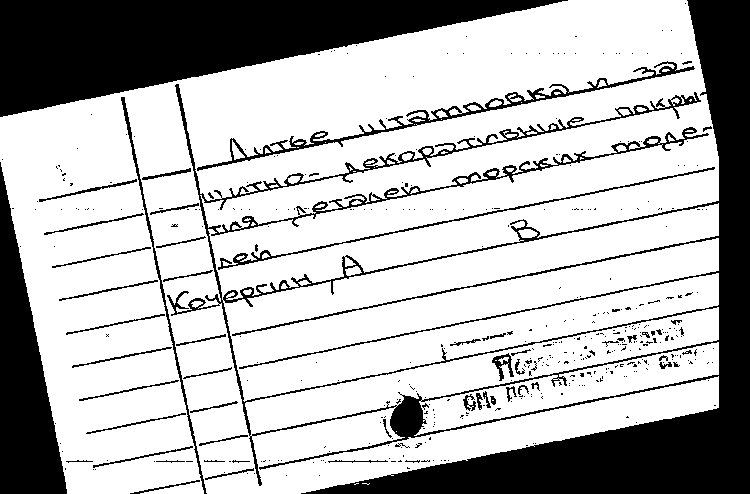 Литье, штамповка и за-
щитно-декоративные покры-
тия деталей морских моде-
лей
Кочергин, А В
см. под